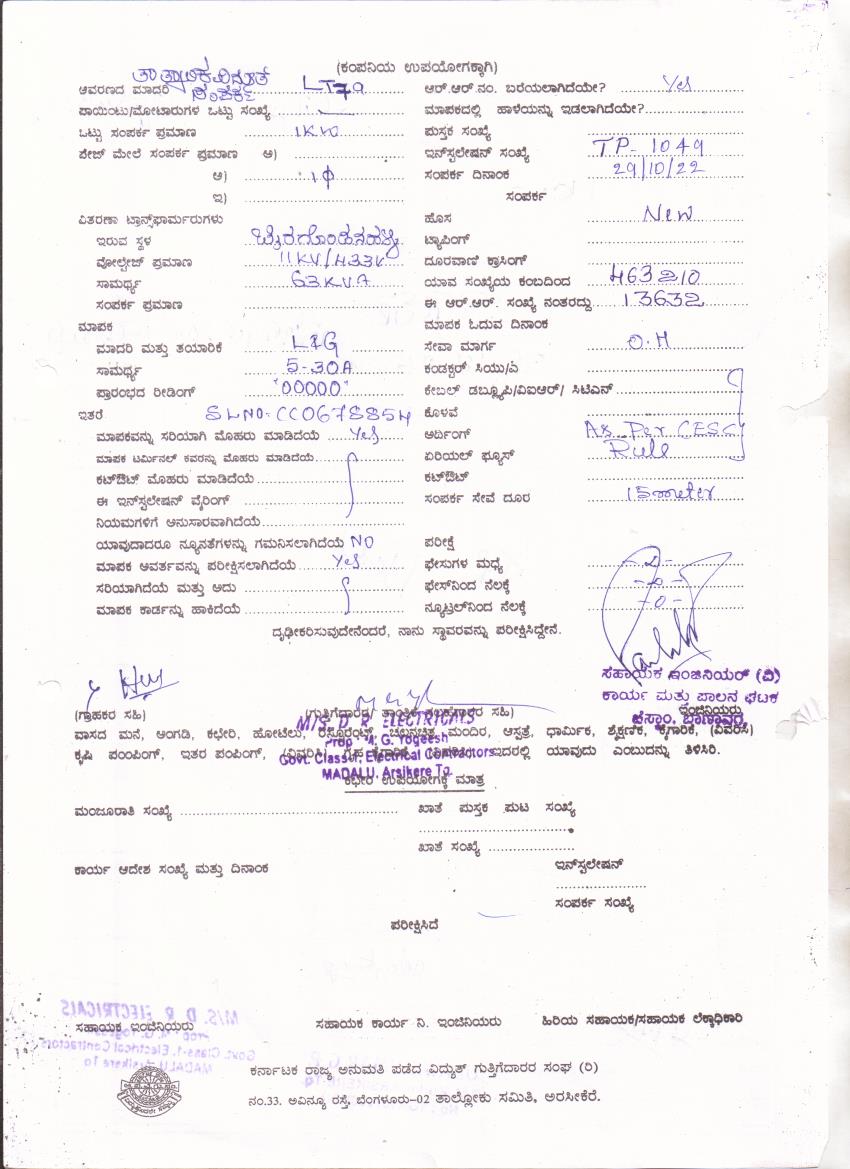 (ಕಂಪನಿಯ ಉಪಯೋಗಕ್ಕಾಗಿ)
ತಾತ್ಕಾಲಿಕ ವಿದ್ಯುತ್
ಸಂಪರ್ಕ
ಆವರಣದ ಮಾದರಿ LT7a
ಪಾಯಿಂಟು/ಮೋಟಾರುಗಳ ಒಟ್ಟು ಸಂಖ್ಯೆ
ಒಟ್ಟು ಸಂಪರ್ಕ ಪ್ರಮಾಣ 1KW
ಪೇಜ್ ಮೇಲೆ ಸಂಪರ್ಕ ಪ್ರಮಾಣ ಅ)
ಆ) 1φ
ಇ)
ವಿತರಣಾ ಟ್ರಾನ್ಸ್‌ಫಾರ್ಮರುಗಳು
ಇರುವ ಸ್ಥಳ ಬೈರಗೊಂಡನಹಳ್ಳಿ
ವೋಲ್ಟೇಜ್ ಪ್ರಮಾಣ 11KV/433V
ಸಾಮರ್ಥ್ಯ 63KVA
ಸಂಪರ್ಕ ಪ್ರಮಾಣ
ಮಾಪಕ
ಮಾದರಿ ಮತ್ತು ತಯಾರಿಕೆ L&G
ಸಾಮರ್ಥ್ಯ 5-30A
ಪ್ರಾರಂಭದ ರೀಡಿಂಗ್ "00000"
ಇತರೆ SLNO: CC0678854
ಮಾಪಕವನ್ನು ಸರಿಯಾಗಿ ಮೊಹರು ಮಾಡಿದೆಯೆ Yes
ಮಾಪಕ ಟರ್ಮಿನಲ್ ಕವರನ್ನು ಮೊಹರು ಮಾಡಿದೆಯೆ
ಕಟ್‌ಔಟ್ ಮೊಹರು ಮಾಡಿದೆಯೆ
ಈ ಇನ್‌ಸ್ಟಲೇಷನ್ ವೈರಿಂಗ್
ನಿಯಮಗಳಿಗೆ ಅನುಸಾರವಾಗಿದೆಯೆ
ಯಾವುದಾದರೂ ನ್ಯೂನತೆಗಳನ್ನು ಗಮನಿಸಲಾಗಿದೆಯೆ NO
ಮಾಪಕ ಆವರ್ತವನ್ನು ಪರೀಕ್ಷಿಸಲಾಗಿದೆಯೆ Yes
ಸರಿಯಾಗಿದೆಯೆ ಮತ್ತು ಅದು
ಮಾಪಕ ಕಾರ್ಡನ್ನು ಹಾಕಿದೆಯೆ
ಆರ್.ಆರ್.ನಂ. ಬರೆಯಲಾಗಿದೆಯೇ? Yes
ಮಾಪಕದಲ್ಲಿ ಹಾಳೆಯನ್ನು ಇಡಲಾಗಿದೆಯೇ?
ಪುಸ್ತಕ ಸಂಖ್ಯೆ
ಇನ್‌ಸ್ಟಲೇಷನ್ ಸಂಖ್ಯೆ TP-1049
ಸಂಪರ್ಕ ದಿನಾಂಕ 29/10/22
ಸಂಪರ್ಕ
ಹೊಸ New
ಟ್ಯಾಪಿಂಗ್
ದೂರವಾಣಿ ಕ್ರಾಸಿಂಗ್
ಯಾವ ಸಂಖ್ಯೆಯ ಕಂಬದಿಂದ 463210
ಈ ಆರ್.ಆರ್. ಸಂಖ್ಯೆ ನಂತರದ್ದು 13632
ಮಾಪಕ ಓದುವ ದಿನಾಂಕ
ಸೇವಾ ಮಾರ್ಗ O.H
ಕಂಡಕ್ಟರ್ ಸಿಯು/ಎ
ಕೇಬಲ್ ಡಬ್ಲ್ಯೂಪಿ/ವಿಐಆರ್/ ಸಿಟಿಎನ್
ಕೊಳವೆ
ಅರ್ದಿಂಗ್ As Per CESC
ಏರಿಯಲ್ ಫ್ಯೂಸ್ Rule
ಕಟ್‌ಔಟ್
ಸಂಪರ್ಕ ಸೇವೆ ದೂರ 15 meter
ಪರೀಕ್ಷೆ
ಫೇಸುಗಳ ಮಧ್ಯೆ
ಫೇಸ್‌ನಿಂದ ನೆಲಕ್ಕೆ -0-
ನ್ಯೂಟ್ರಲ್‌ನಿಂದ ನೆಲಕ್ಕೆ -0-
ದೃಢೀಕರಿಸುವುದೇನೆಂದರೆ, ನಾನು ಸ್ಥಾವರವನ್ನು ಪರೀಕ್ಷಿಸಿದ್ದೇನೆ.
ಸಹಾಯಕ ಇಂಜಿನಿಯರ್ (ವಿ)
ಕಾರ್ಯ ಮತ್ತು ಪಾಲನ ಘಟಕ
ಇಂಜಿನಿಯರು
ಚೆಸ್ಕಾಂ, ಬಾಣಾವರ
(ಗ್ರಾಹಕರ ಸಹಿ) (ಗುತ್ತಿಗೆದಾರರ/ ತಾಂತ್ರಿಕ ಸಲಹೆಗಾರರ ಸಹಿ)
M/S. D R ELECTRICALS
Govt. Class-I, Electrical Contractors
MADALU, Arsikere Tq.
ವಾಸದ ಮನೆ, ಅಂಗಡಿ, ಕಛೇರಿ, ಹೋಟೆಲು, ರೆಸ್ಟೊರೆಂಟ್, ಚಲನಚಿತ್ರ ಮಂದಿರ, ಆಸ್ಪತ್ರೆ, ಧಾರ್ಮಿಕ, ಶೈಕ್ಷಣಿಕ, ಕೈಗಾರಿಕೆ, (ವಿವರಿಸಿ)
ಕೃಷಿ ಪಂಪಿಂಗ್, ಇತರ ಪಂಪಿಂಗ್, (ವಿವರಿಸಿ) ಇದರಲ್ಲಿ ಯಾವುದು ಎಂಬುದನ್ನು ತಿಳಿಸಿರಿ.
ಕಛೇರಿ ಉಪಯೋಗಕ್ಕೆ ಮಾತ್ರ
ಮಂಜೂರಾತಿ ಸಂಖ್ಯೆ
ಖಾತೆ ಪುಸ್ತಕ ಪುಟ ಸಂಖ್ಯೆ
ಖಾತೆ ಸಂಖ್ಯೆ
ಕಾರ್ಯ ಆದೇಶ ಸಂಖ್ಯೆ ಮತ್ತು ದಿನಾಂಕ
ಇನ್‌ಸ್ಟಲೇಷನ್
ಸಂಪರ್ಕ ಸಂಖ್ಯೆ
ಪರೀಕ್ಷಿಸಿದೆ
ಸಹಾಯಕ ಇಂಜಿನಿಯರು ಸಹಾಯಕ ಕಾರ್ಯ ನಿ. ಇಂಜಿನಿಯರು ಹಿರಿಯ ಸಹಾಯಕ/ಸಹಾಯಕ ಲೆಕ್ಕಾಧಿಕಾರಿ
ಕರ್ನಾಟಕ ರಾಜ್ಯ ಅನುಮತಿ ಪಡೆದ ವಿದ್ಯುತ್ ಗುತ್ತಿಗೆದಾರರ ಸಂಘ (ರಿ)
ನಂ.33. ಅವಿನ್ಯೂ ರಸ್ತೆ, ಬೆಂಗಳೂರು-02 ತಾಲ್ಲೋಕು ಸಮಿತಿ, ಅರಸೀಕೆರೆ.